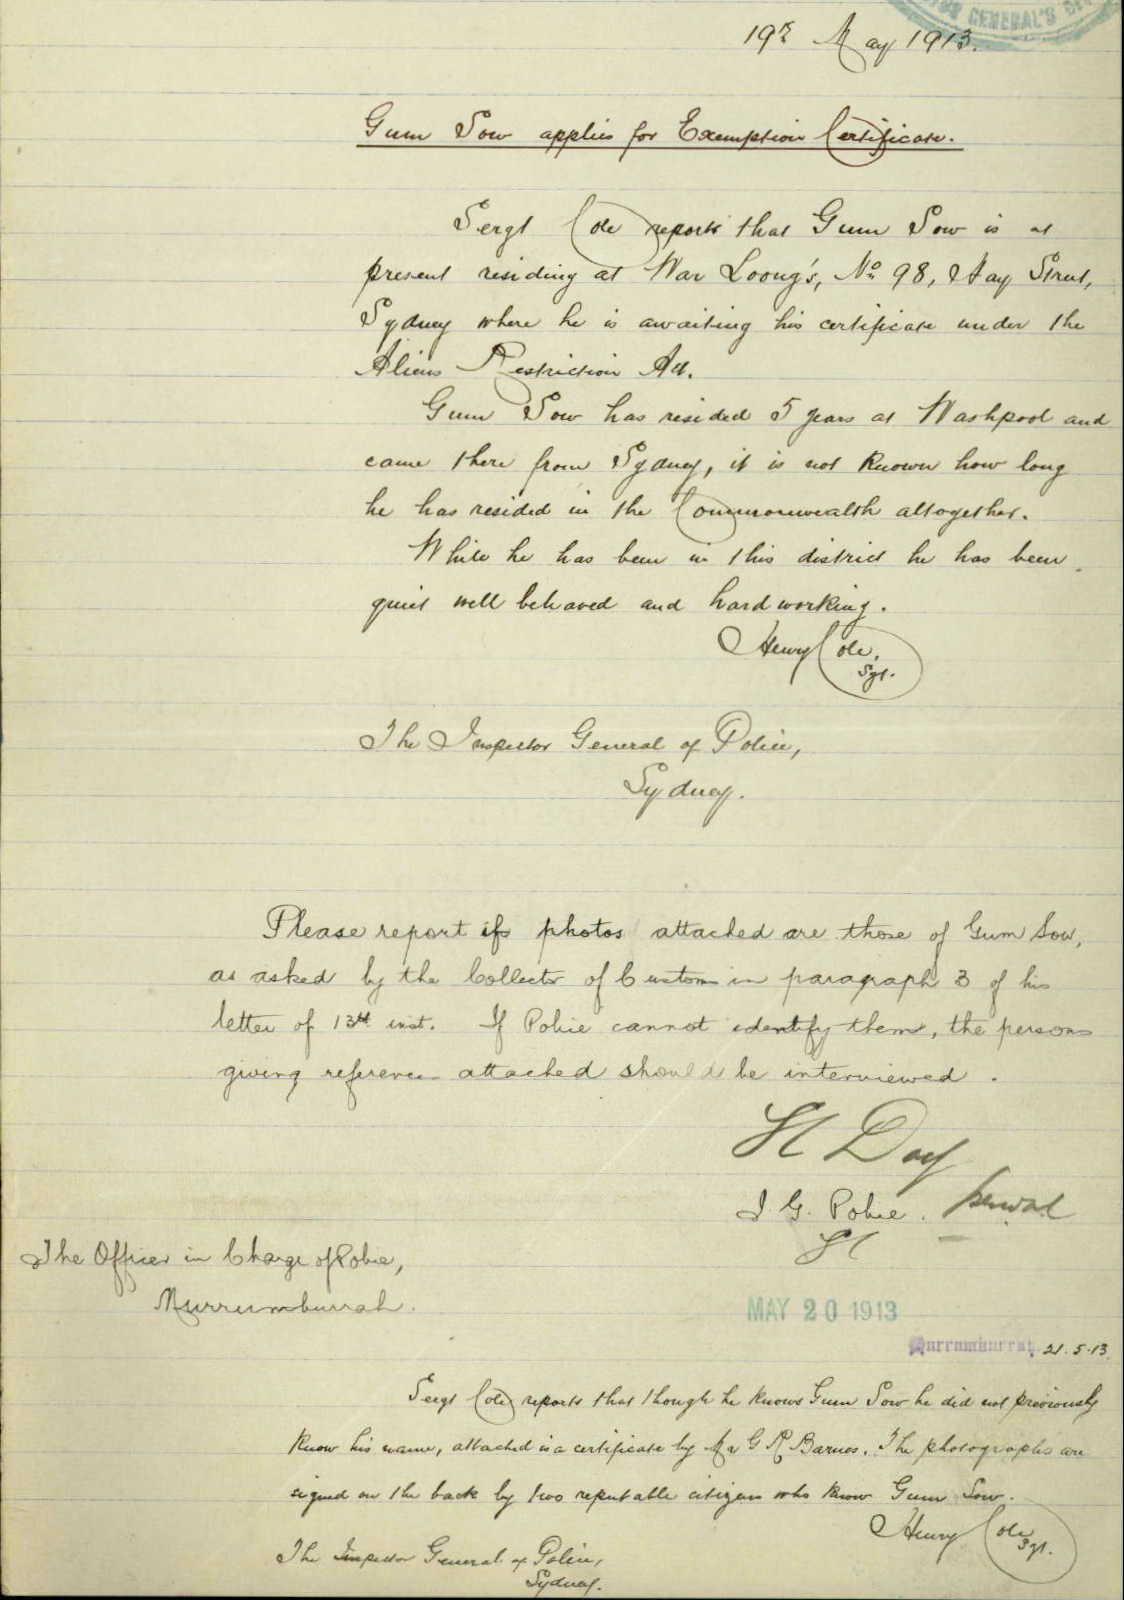 GENERAL'S
19th May 1913.
Gum Sow applies for Exemption Certificate.
Sergt Cole reports that Gum Sow is at
present residing at War Loong's, No 98, Hay Street,
Sydney where he is awaiting his certificate under the
Aliens Restriction Act.
Gum Sow has resided 5 years at Washpool and
came there from Sydney, it is not known how long
he has resided in the Commonwealth altogether.
While he has been in this district he has been
quiet well behaved and hard working.
Henry Cole,
Sgt.
The Inspector General of Police,
Sydney.
Please report if photos attached are those of Gum Sow,
as asked by the Collector of Customs in paragraph 3 of his
letter of 13th inst. If Police cannot identify them, the persons
giving references attached should be interviewed.
Day
I. G. Police.
The Officer in Charge of Police,
Murrumburrah.
MAY 20 1913
Murrumburrah, 21.5.13
Sergt Cole reports that though he knows Gum Sow he did not previously
know his name, attached is a certificate by Mr G R Barnes. The photographs are
signed on the back by two reputable citizens who know Gum Sow.
Henry Cole
Sgt.
The Inspector General of Police,
Sydney.